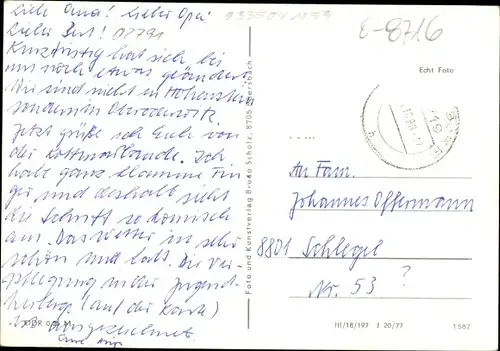 Liebe Oma! Lieber Opa!
Lieber Bert! 07791
Kurzfristig hat sich bei
uns noch etwas geändert.
Wir sind nicht in Hohenstein
sondern in Oberoderwitz.
Jetzt grüße ich Euch von
der Kottmarbaude. Ich
habe ganz klamme Fin-
ger und deshalb sieht
die Schrift so komisch
aus. Das Wetter ist sehr
schön und kalt. Die Ver-
pflegung in der Jugend-
herberge (auf der Karte)
ist ausgezeichnet.
Eure
Foto und Kunstverlag Bruno Scholz, 8705 Ebersbach
E-8716
Echt Foto
An Fam.
Johannes Offermann
8801 Schlegel
Nr. 53 ?
III/18/197 J 20/77
1582